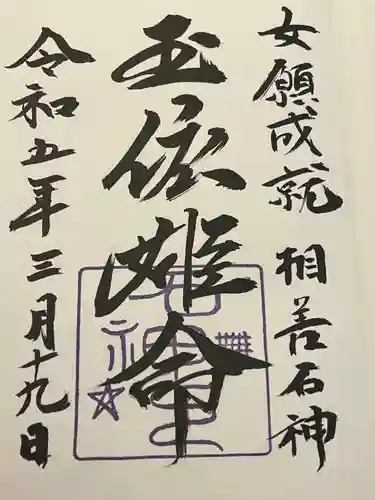 女願成就 相差石神
玉依姫命
令和五年三月十九日
石神